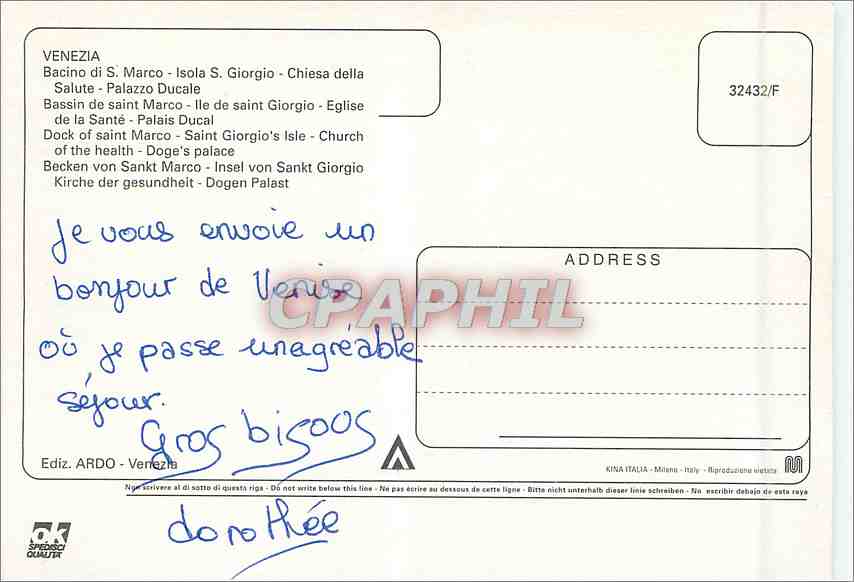 VENEZIA
Bacino di S. Marco - Isola S. Giorgio - Chiesa della
Salute - Palazzo Ducale
Bassin de saint Marco - Ile de saint Giorgio - Eglise
de la Santé - Palais Ducal
Dock of saint Marco - Saint Giorgio's Isle - Church
of the health - Doge's palace
Becken von Sankt Marco - Insel von Sankt Giorgio
Kirche der gesundheit - Dogen Palast
32432/F
Je vous envoie un
bonjour de Venise
où je passe unagréable
séjour.
Gros bisous
dorothée
ADDRESS
CPAPHIL
Ediz. ARDO - Venezia
KINA ITALIA - Milano - Italy - Riproduzione vietata
Non scrivere al di sotto di questa riga - Do not write below this line - Ne pas écrire au dessous de cette ligne - Bitte nicht unterhalb dieser linie schreiben - No escribir debajo de esta raya
ok
SPEDISCI
QUALITA'